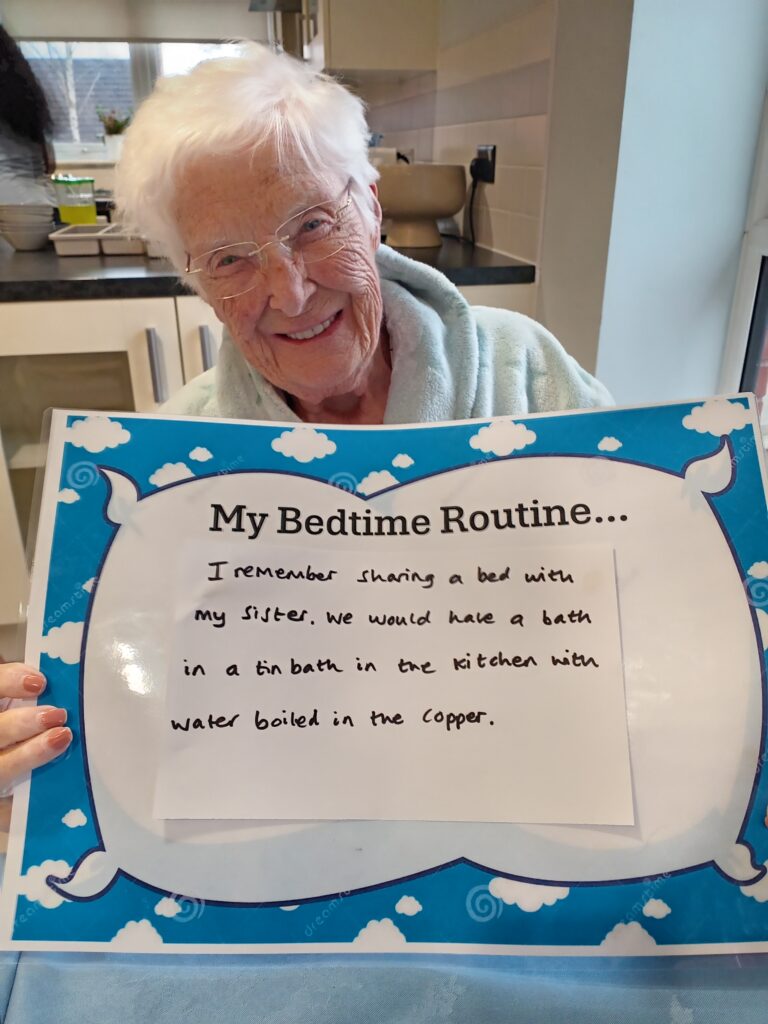 My Bedtime Routine...
I remember sharing a bed with
my sister. We would have a bath
in a tin bath in the kitchen with
water boiled in the copper.